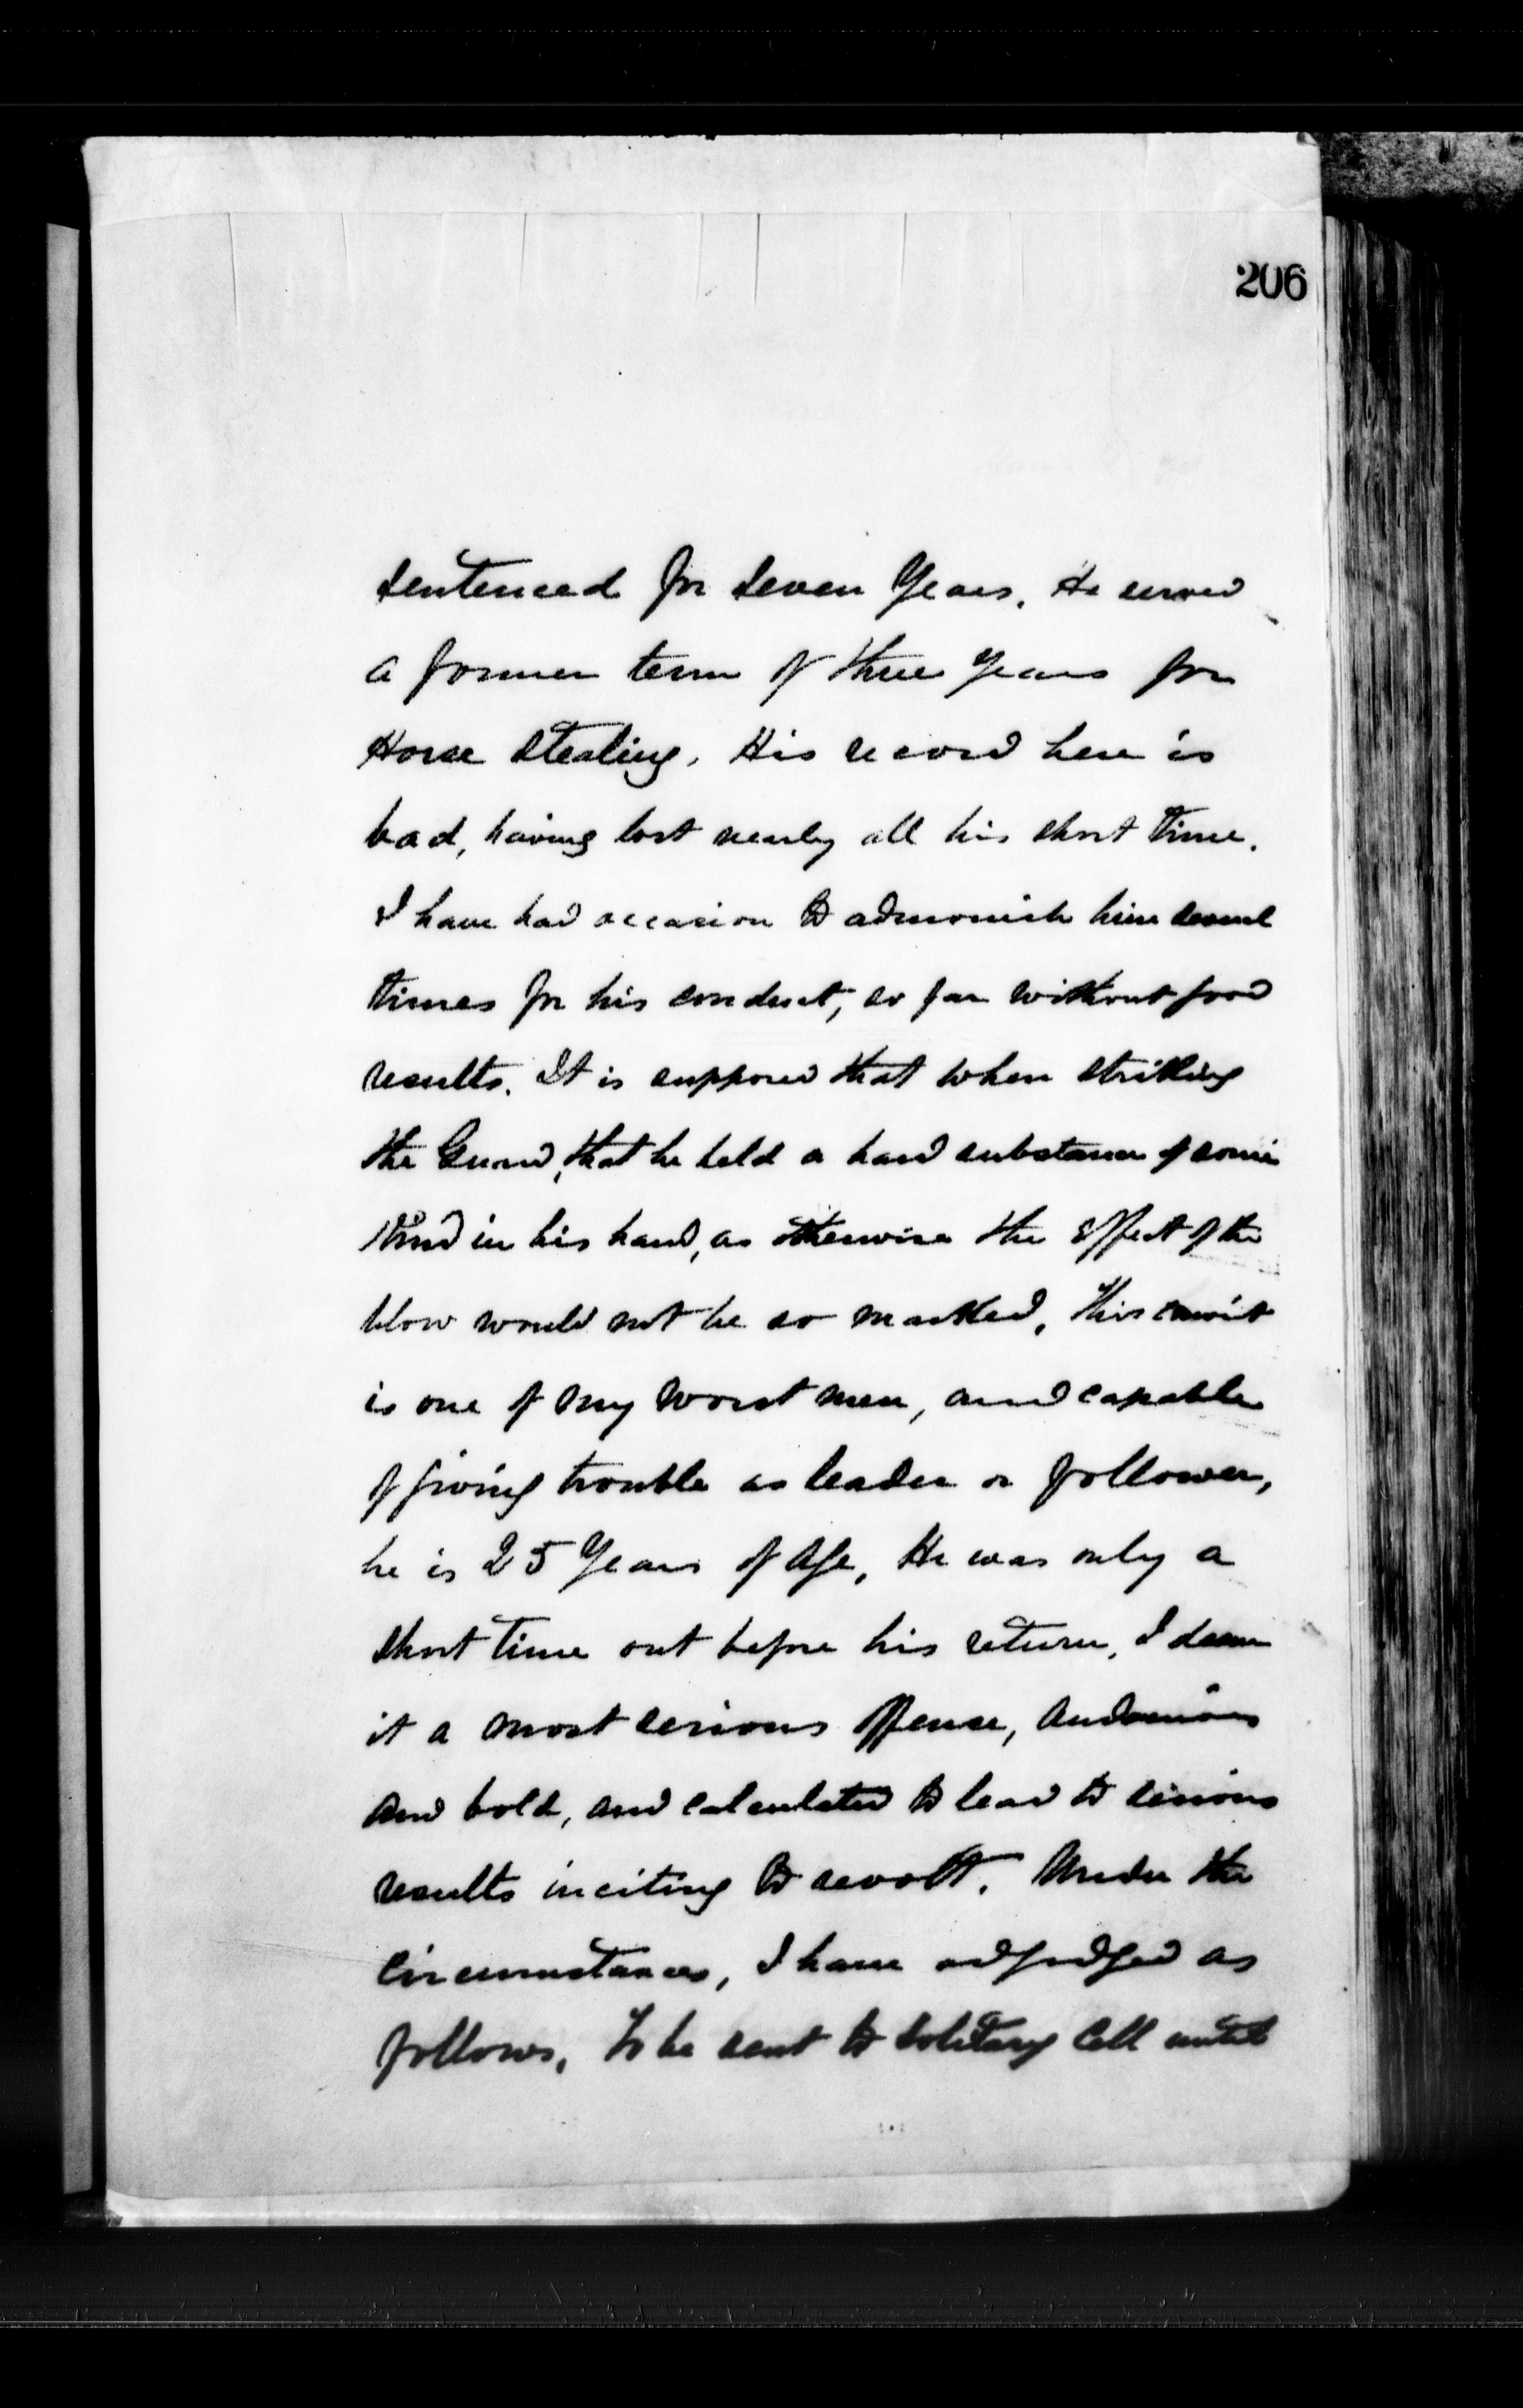 206
sentenced for seven Years. He served
a former term of three years for
Horse Stealing. His record here is
bad, having lost nearly all his short time.
I have had occasion to admonish him several
times for his conduct, so far without good
results. It is supposed that when striking
the Guard, that he held a hard substance of some
kind in his hand, as otherwise the effect of the
blow would not be so marked, this convict
is one of my worst men, and capable
of giving trouble as leader or follower,
he is 25 Years of age, He was only a
short time out before his return, I deem
it a most serious offense, audacious
and bold, and calculated to lead to serious
results inciting to revolt. Under the
circumstances, I have adjudged as
follows, To be sent to Solitary Cell until